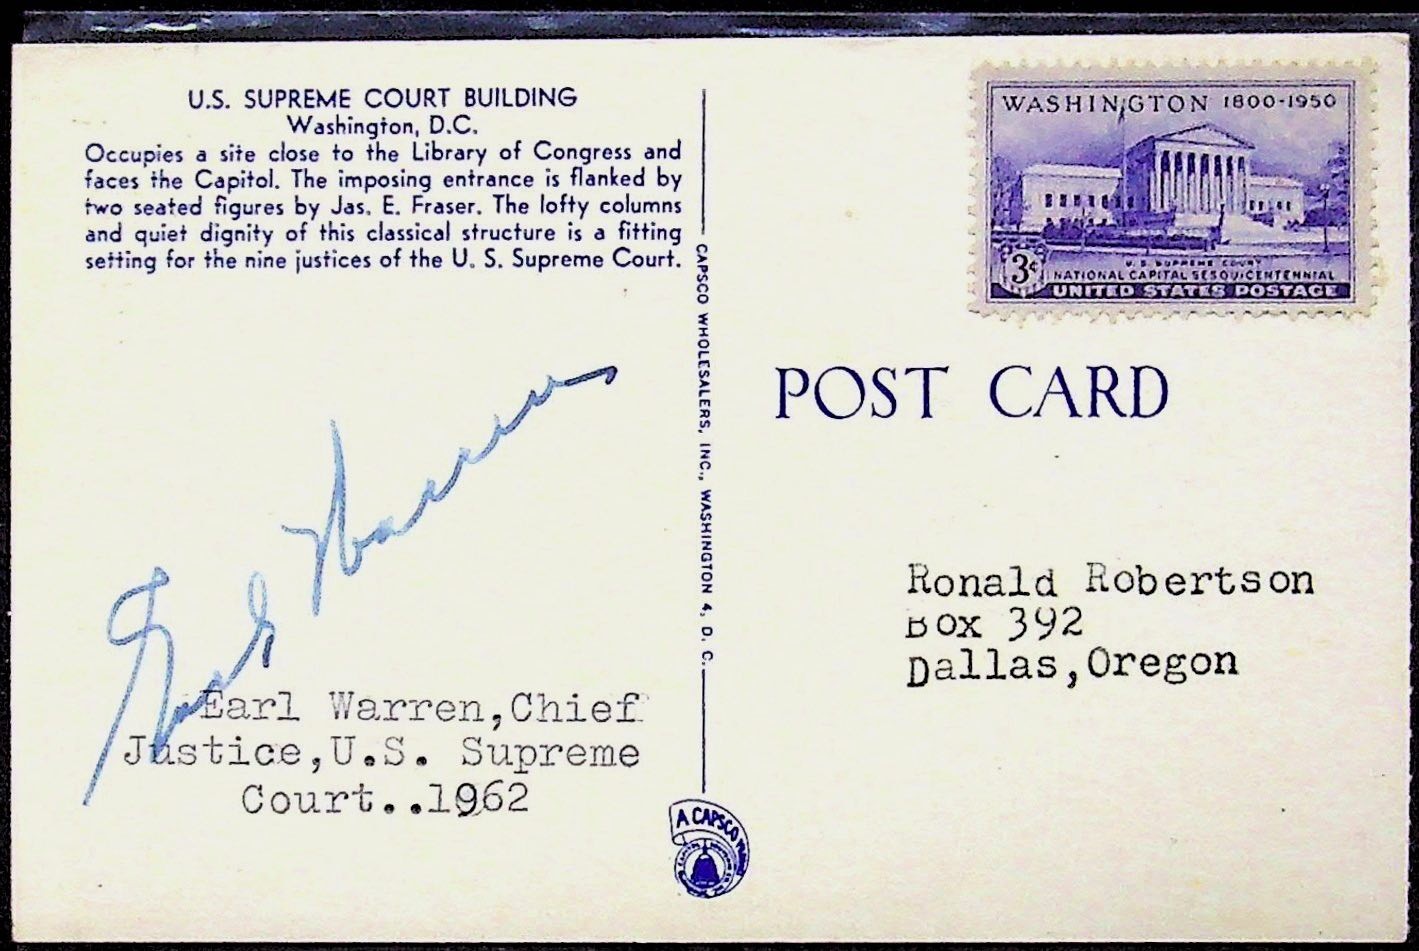 U.S. SUPREME COURT BUILDING
Washington, D.C.
Occupies a site close to the Library of Congress and
faces the Capitol. The imposing entrance is flanked by
two seated figures by Jas. E. Fraser. The lofty columns
and quiet dignity of this classical structure is a fitting
setting for the nine justices of the U. S. Supreme Court.
Earl Warren
Earl Warren,Chief
Justice,U.S. Supreme
Court..1962
CAPSCO WHOLESALERS, INC., WASHINGTON 4, D. C.
A CAPSCO
WASHINGTON 1800-1950
3¢
U.S. SUPREME COURT
NATIONAL CAPITAL SESQUICENTENNIAL
UNITED STATES POSTAGE
POST CARD
Ronald Robertson
Box 392
Dallas,Oregon